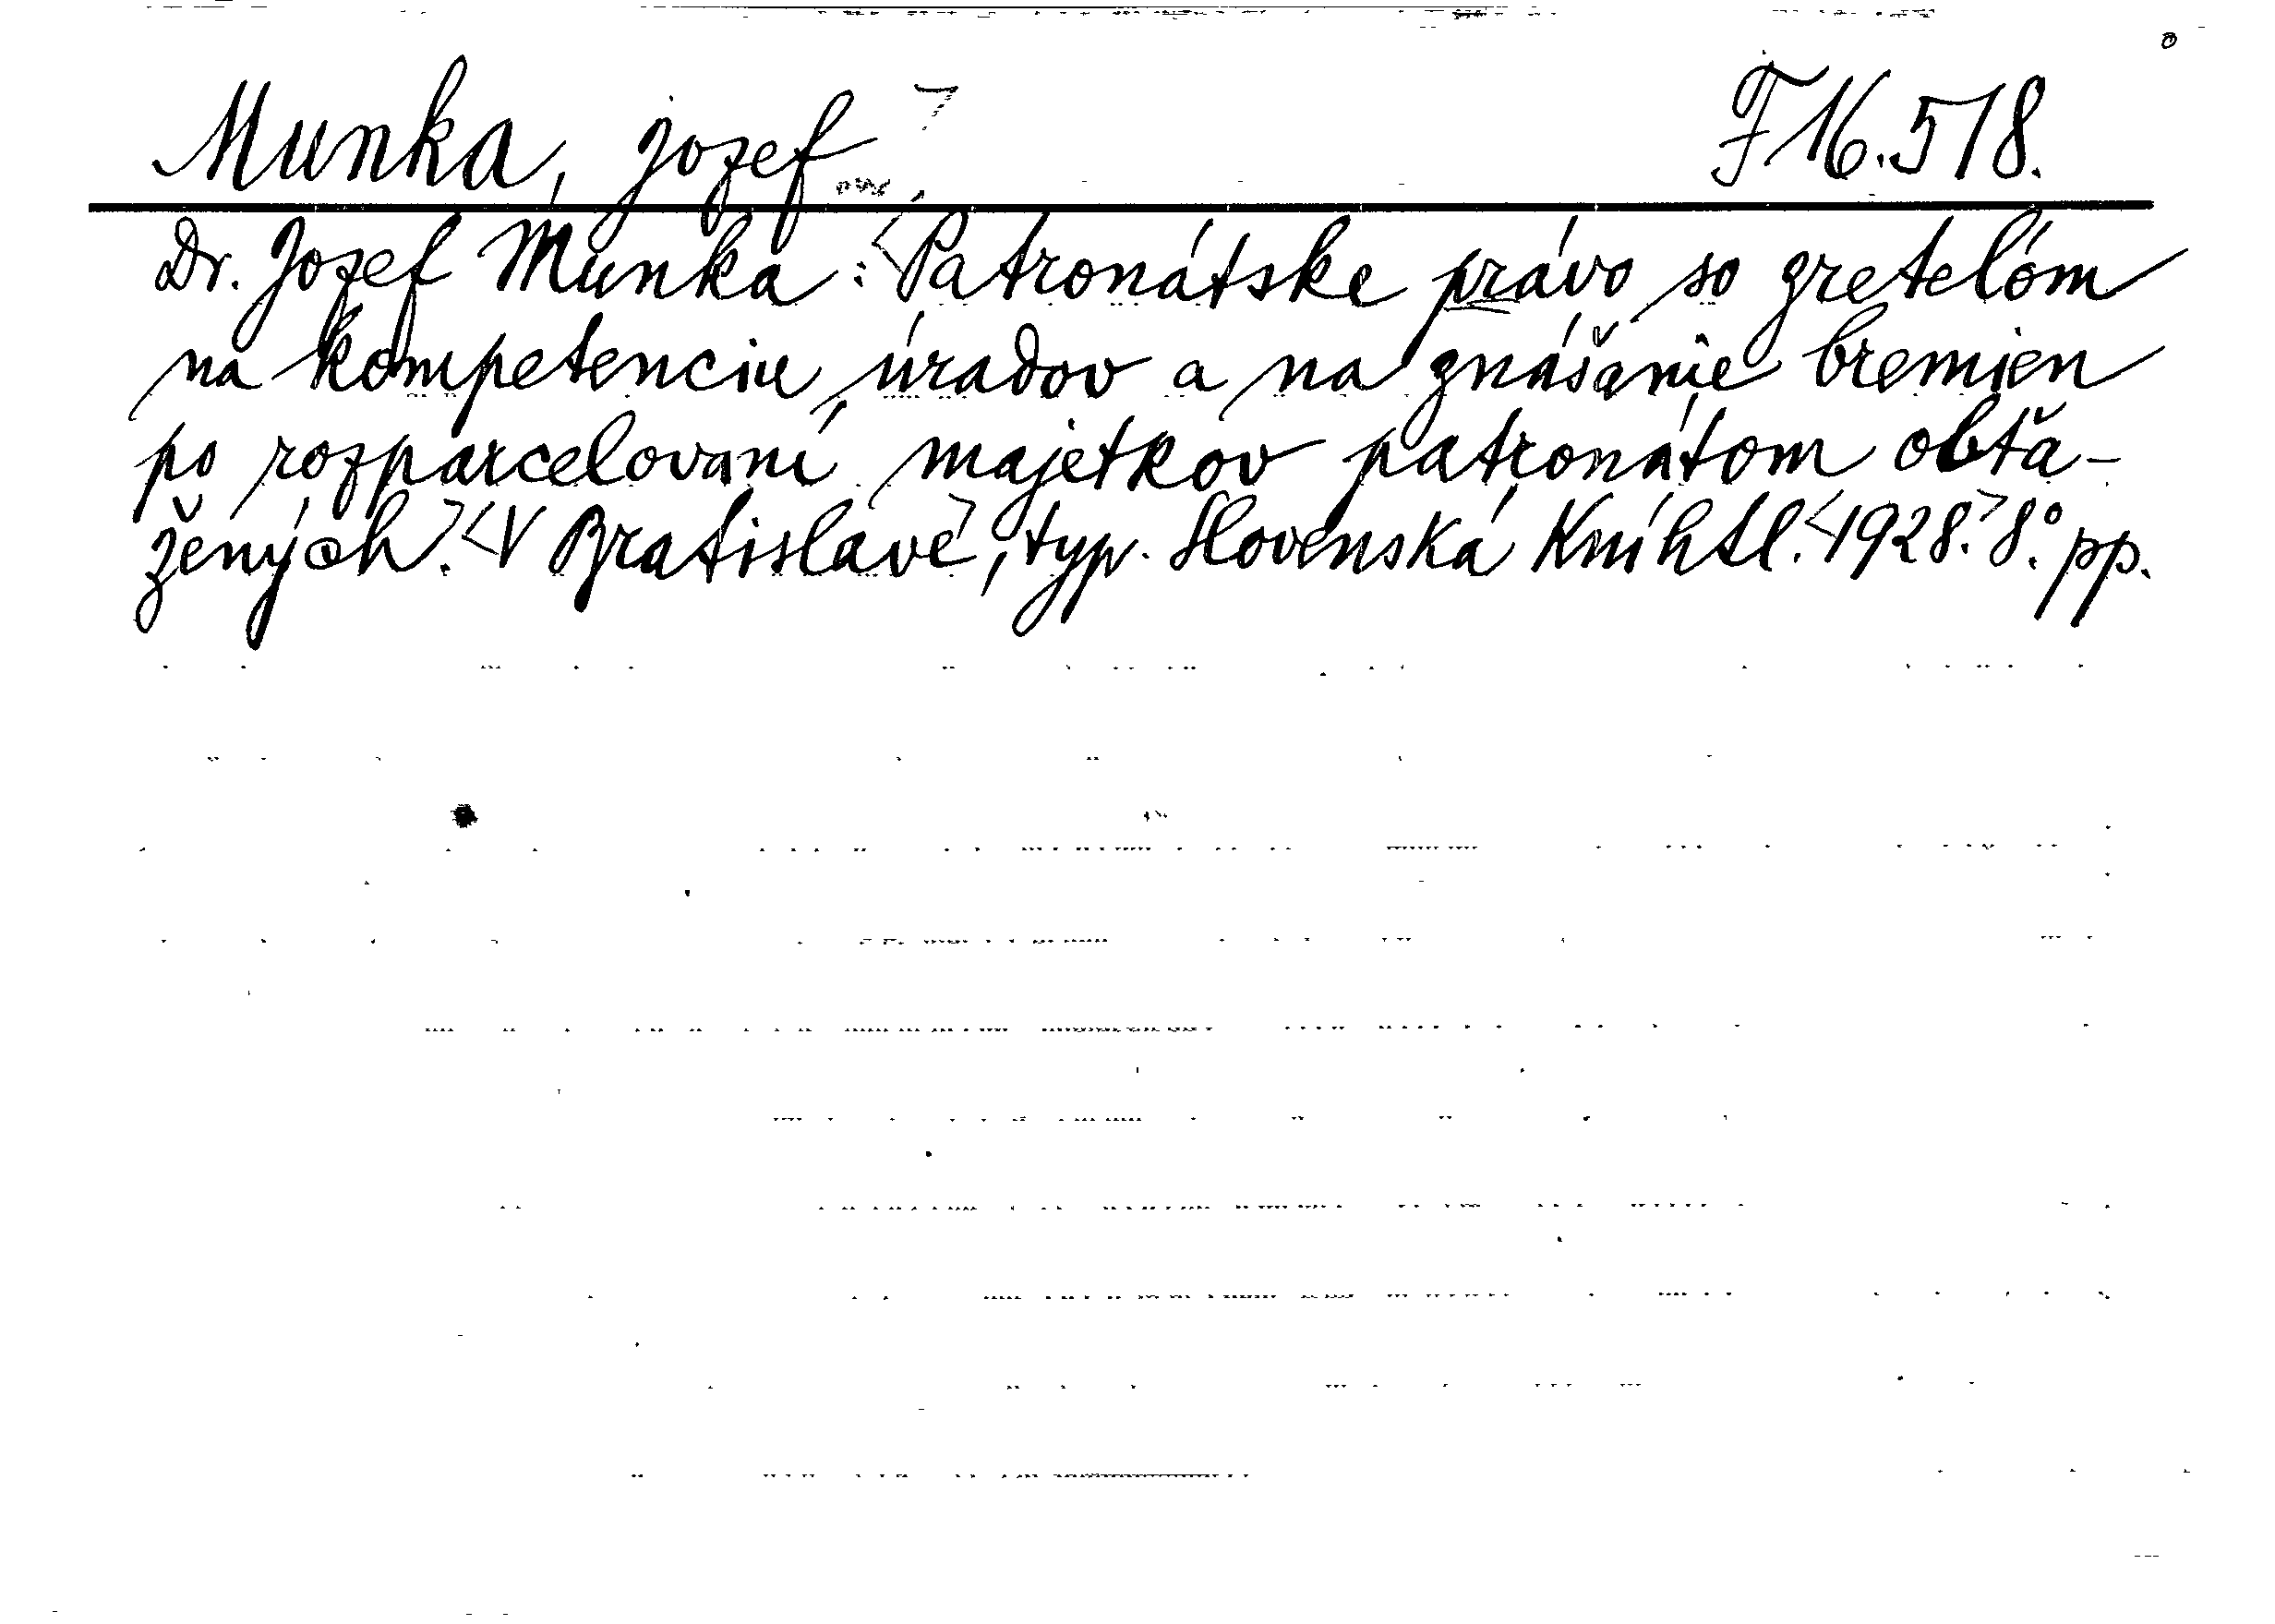 Munka, Jozef F 16.518.
Dr. Jozef Munka: <Patronátske právo so zreteľom
na kompetenciu úradov a na znášanie bremien
po rozparcelovaní majetkov patronátom obťa-
žených.> <V Bratislave>, typ. Slovenská Kníhtl. <1928.> 8°. pp.